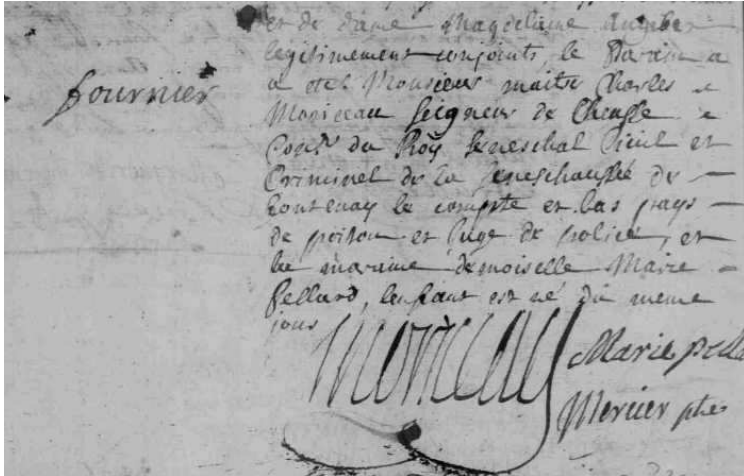 et de dame Magdelaine
legitimement conjoints, le Parain a
a eté Monsieur maitre Charles
Moriceau Seigneur de Cheusse
Cons.r du Roÿ Seneschal Civil et
Criminel de la Seneschaussée de
fontenay le compte et bas pays
de poitou et Juge de police, et
la maraine demoiselle Marie
Pellard, lenfant est né du meme
jour
fournier
Moriceau
Marie pella
Mercier ptre